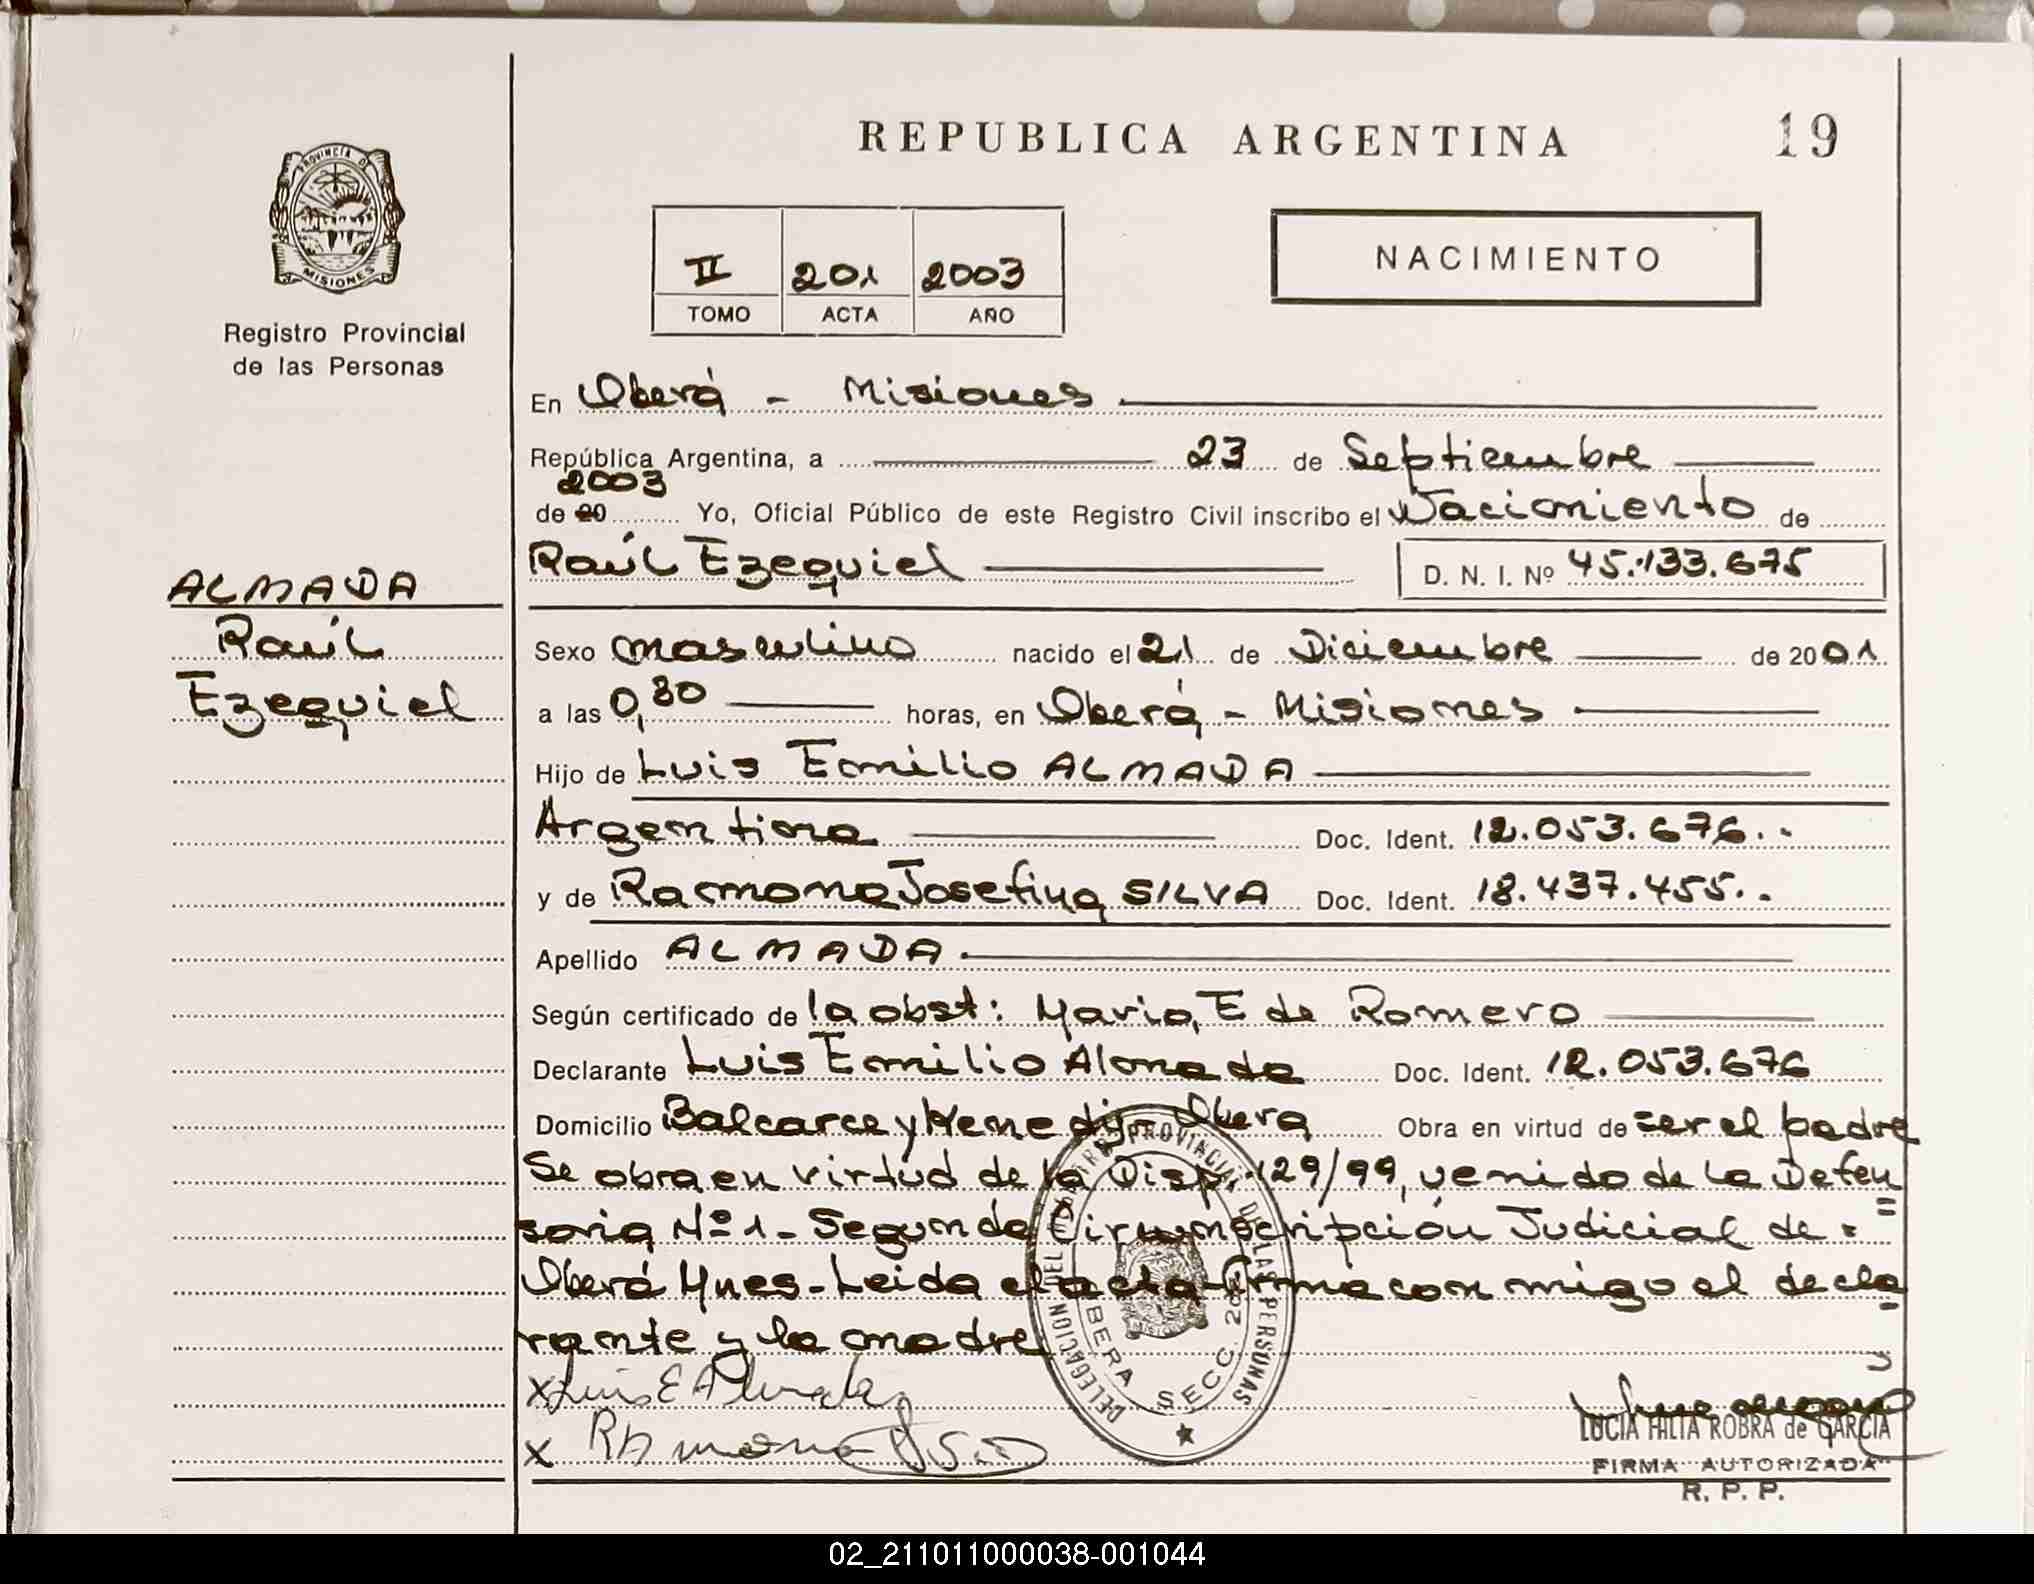 REPUBLICA ARGENTINA
19
PROVINCIA DE
MISIONES
Registro Provincial
de las Personas
II 201 2003
TOMO ACTA AÑO
NACIMIENTO
En Oberá - Misiones
República Argentina, a 23 de Septiembre
2003
de 20 Yo, Oficial Público de este Registro Civil inscribo el Nacimiento de
Raúl Ezequiel D. N. I. Nº 45.133.675
ALMADA
Raúl
Ezequiel
Sexo masculino nacido el 21 de Diciembre de 2001
a las 0,30 horas, en Oberá - Misiones
Hijo de Luis Emilio ALMADA
Argentina Doc. Ident. 12.053.676.-
y de Ramona Josefina SILVA Doc. Ident. 18.437.455.-
Apellido ALMADA
Según certificado de la obst: Maria, E de Romero
Declarante Luis Emilio Almada Doc. Ident. 12.053.676
Domicilio Balcarce y Kenedy- Obera Obra en virtud de ser el padre
Se obra en virtud de la Disp. 129/99, venido de la Defen
soria Nº 1 - Segunda Circunscripción Judicial de =
Oberá Mnes - Leida el acta firma conmigo el decla
rante y la madre
x Luis E Almada
x Ramona
DELEGACION DEL REGISTRO PROVINCIAL DE LAS PERSONAS
OBERA SECC. 2da
LUCIA ROBRA de GARCIA
FIRMA AUTORIZADA
R. P. P.
02_211011000038-001044